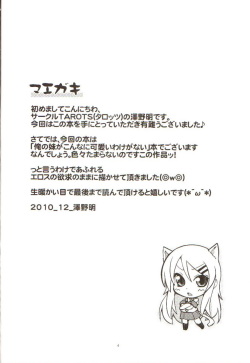 マエガキ
初めましてこんにちわ、
サークルTAROTS(タロッツ)の澤野明です。
今回はこの本を手にとっていただき有難うございました♪
さてでは、今回の本は
「俺の妹がこんなに可愛いわけがない」本でございます
なんでしょう。色々たまらないのですこの作品ッ!
っと言うわけであふれる
エロスの欲求のままに描かせて頂きました(◎w◎)
生暖かい目で最後まで読んで頂けると嬉しいです(*´ω`*)
2010_12_澤野明